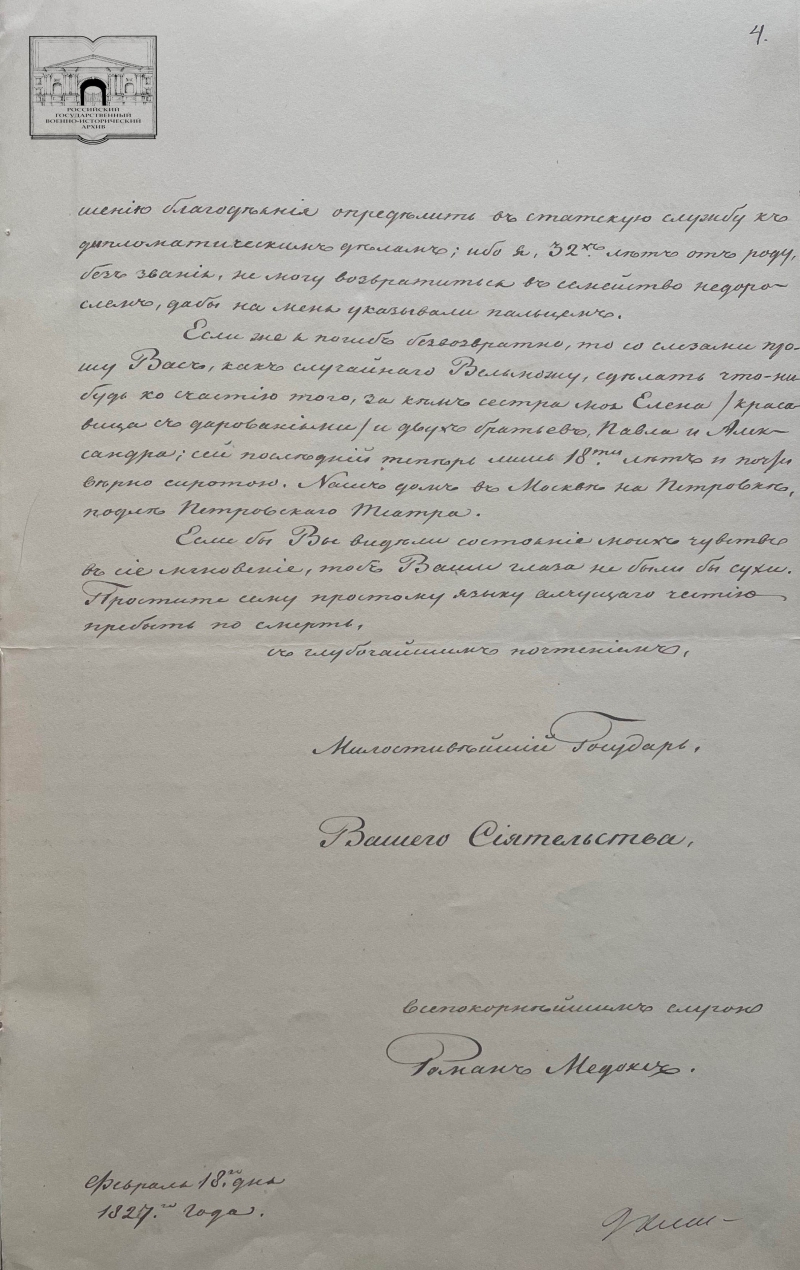 4.
РОССИЙСКИЙ
ГОСУДАРСТВЕННЫЙ
ВОЕННО-ИСТОРИЧЕСКИЙ
АРХИВ
шенію благодѣянія опредѣлить въ статскую службу къ
дипломатическимъ дѣламъ; ибо я, 32хъ лѣтъ отъ роду,
безъ званія, не могу возвратиться въ семейство недоро-
слемъ, дабы на меня указывали пальцемъ.
Если же я погибъ безвозвратно, то со слезами про-
шу Васъ, какъ случайнаго Вельможу, сдѣлать что-ни
будь ко счастію того, за кѣмъ сестра моя Елена /краса
вица съ дарованіями/ и двухъ братьевъ, Павла и Алек-
сандра; сей послѣдній теперь лишь 18ти лѣтъ и почти
вѣрно сиротою. Нашъ домъ въ Москвѣ на Петровкѣ,
подлѣ Петровскаго Театра.
Если бы Вы видѣли состояніе моихъ чувствъ
въ сіе мгновеніе, тобъ Ваши глаза не были бы сухи.
Простите сему простому языку алчущаго честію
пребыть по смерть,
съ глубочайшимъ почтеніемъ,
Милостивѣйшій Государь,
Вашего Сіятельства,
всепокорнѣйшимъ слугою
Романъ Медоксъ.
Февраля 18го дня
1827го года.